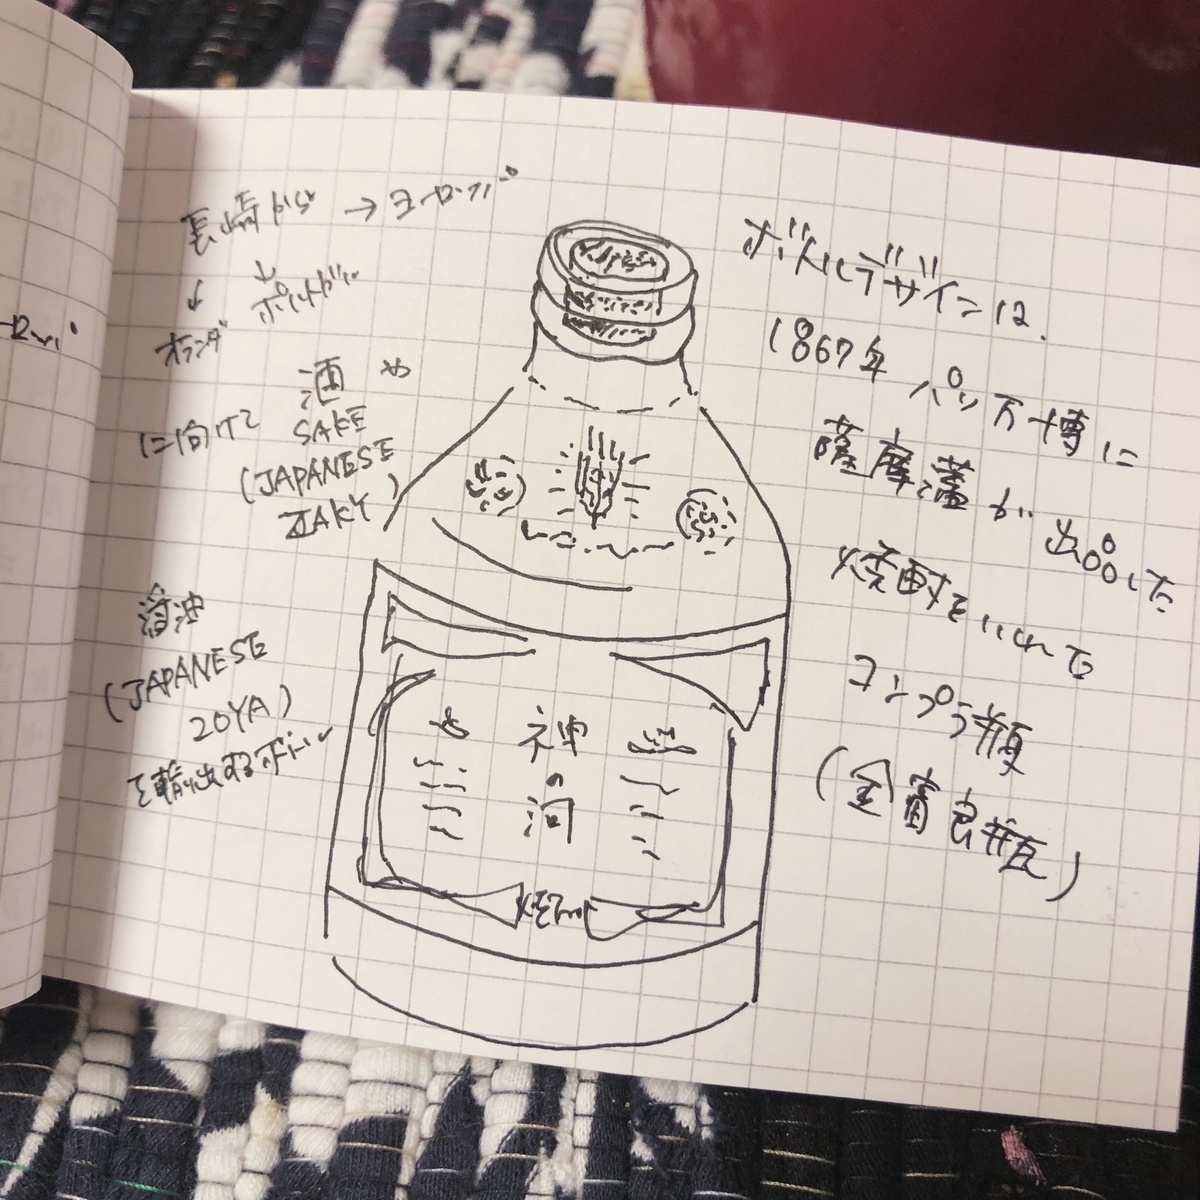 長崎から → ヨーロッパ
ポルトガル
オランダ
に向けて
酒 や
SAKE
(JAPANESE
ZAKY)
醤油
(JAPANESE
ZOYA)
を輸出するボトル
神
の
河
ボトルデザインは、
1867年 パリ万博に
薩摩藩が 出品した
焼酎をいれた
コンプラ瓶
(金富良瓶)